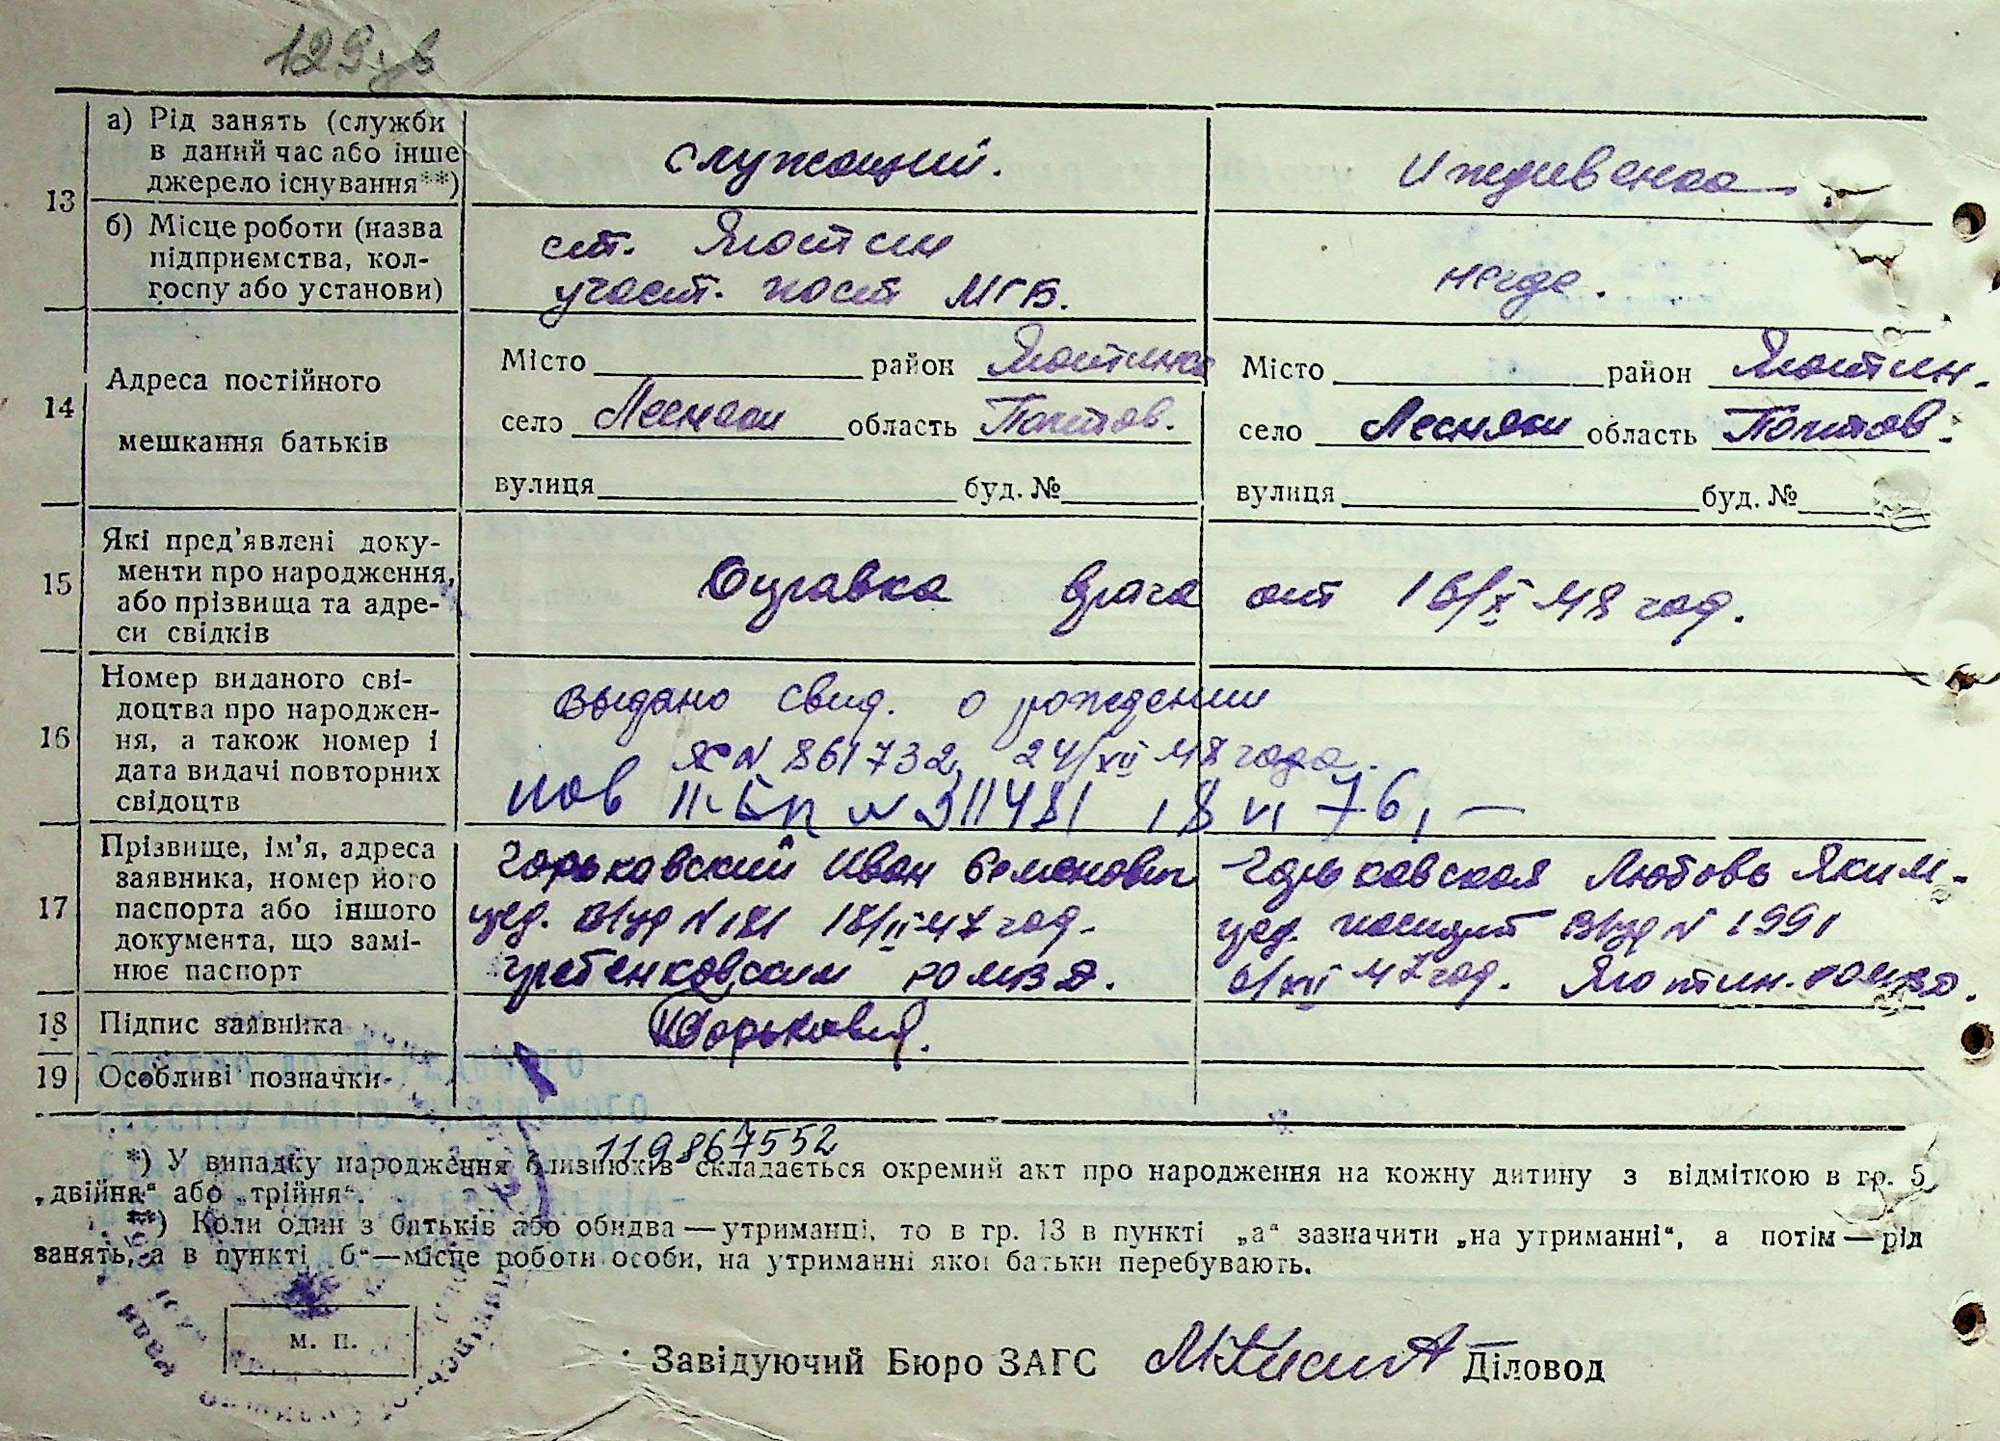 129
13
а) Рід занять (служби
в даний час або інше
джерело існування**)
служащий.
Иждивенка
б) Місце роботи (назва
підприємства, кол-
госпу або установи)
ст. Яготин
участ. пост МГБ.
негде.
14
Адреса постійного
мешкання батьків
Місто район Яготинск
село Лесняки область Полтов.
вулиця буд. №
Місто район Яготин.
село Лесняки область Полтов.
вулиця буд. №
15
Які пред'явлені доку-
менти про народження,
або прізвища та адре-
си свідків
Справка врача от 16/X 48 год.
16
Номер виданого сві-
доцтва про народжен-
ня, а також номер і
дата видачі повторних
свідоцтв
Выдано свид. о рождении
N 861732, 24/XII 48 года.
пов II-БП N 311481 18 VI 76,
17
Прізвище, ім'я, адреса
заявника, номер його
паспорта або іншого
документа, що замі-
нює паспорт
Горьковский Иван Семенович
уд. N 181 18/II-47 год.
Гребенковским РОМВД.
Горьковская Любовь Яким-
паспорт N 1991
6/XII 47 год. Яготин. РОМВД.
18
Підпис заявника
Горьковс
19
Особливі позначки
119867552
*) У випадку народження близнюків складається окремий акт про народження на кожну дитину з відміткою в гр. 5
„двійня“ або „трійня“.
**) Коли один з батьків або обидва — утриманці, то в гр. 13 в пункті „а“ зазначити „на утриманні“, а потім — рід
занять, а в пункті „б“ — місце роботи особи, на утриманні якої батьки перебувають.
м. п.
Завідуючий Бюро ЗАГС Діловод